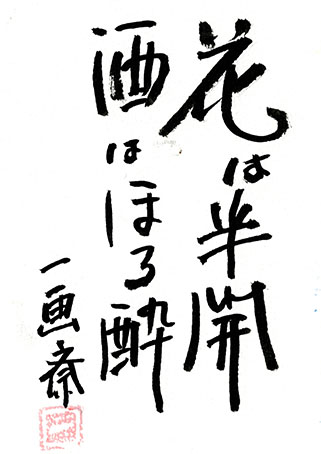 花は半開
酒はほろ酔
一画斎